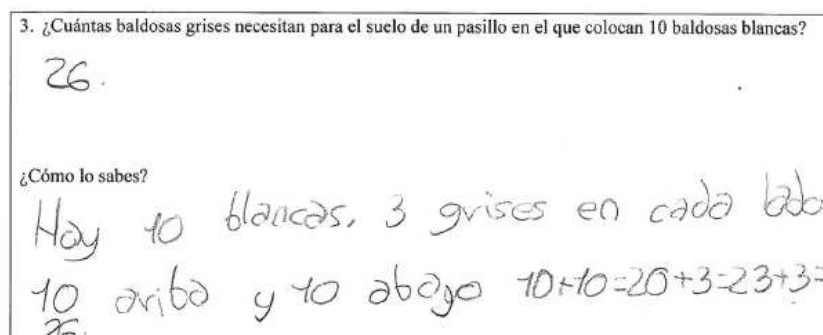 3. ¿Cuántas baldosas grises necesitan para el suelo de un pasillo en el que colocan 10 baldosas blancas?
26.
¿Cómo lo sabes?
Hay 10 blancas, 3 grises en cada lado
10 ariba y 10 abago 10+10=20+3=23+3=
26.